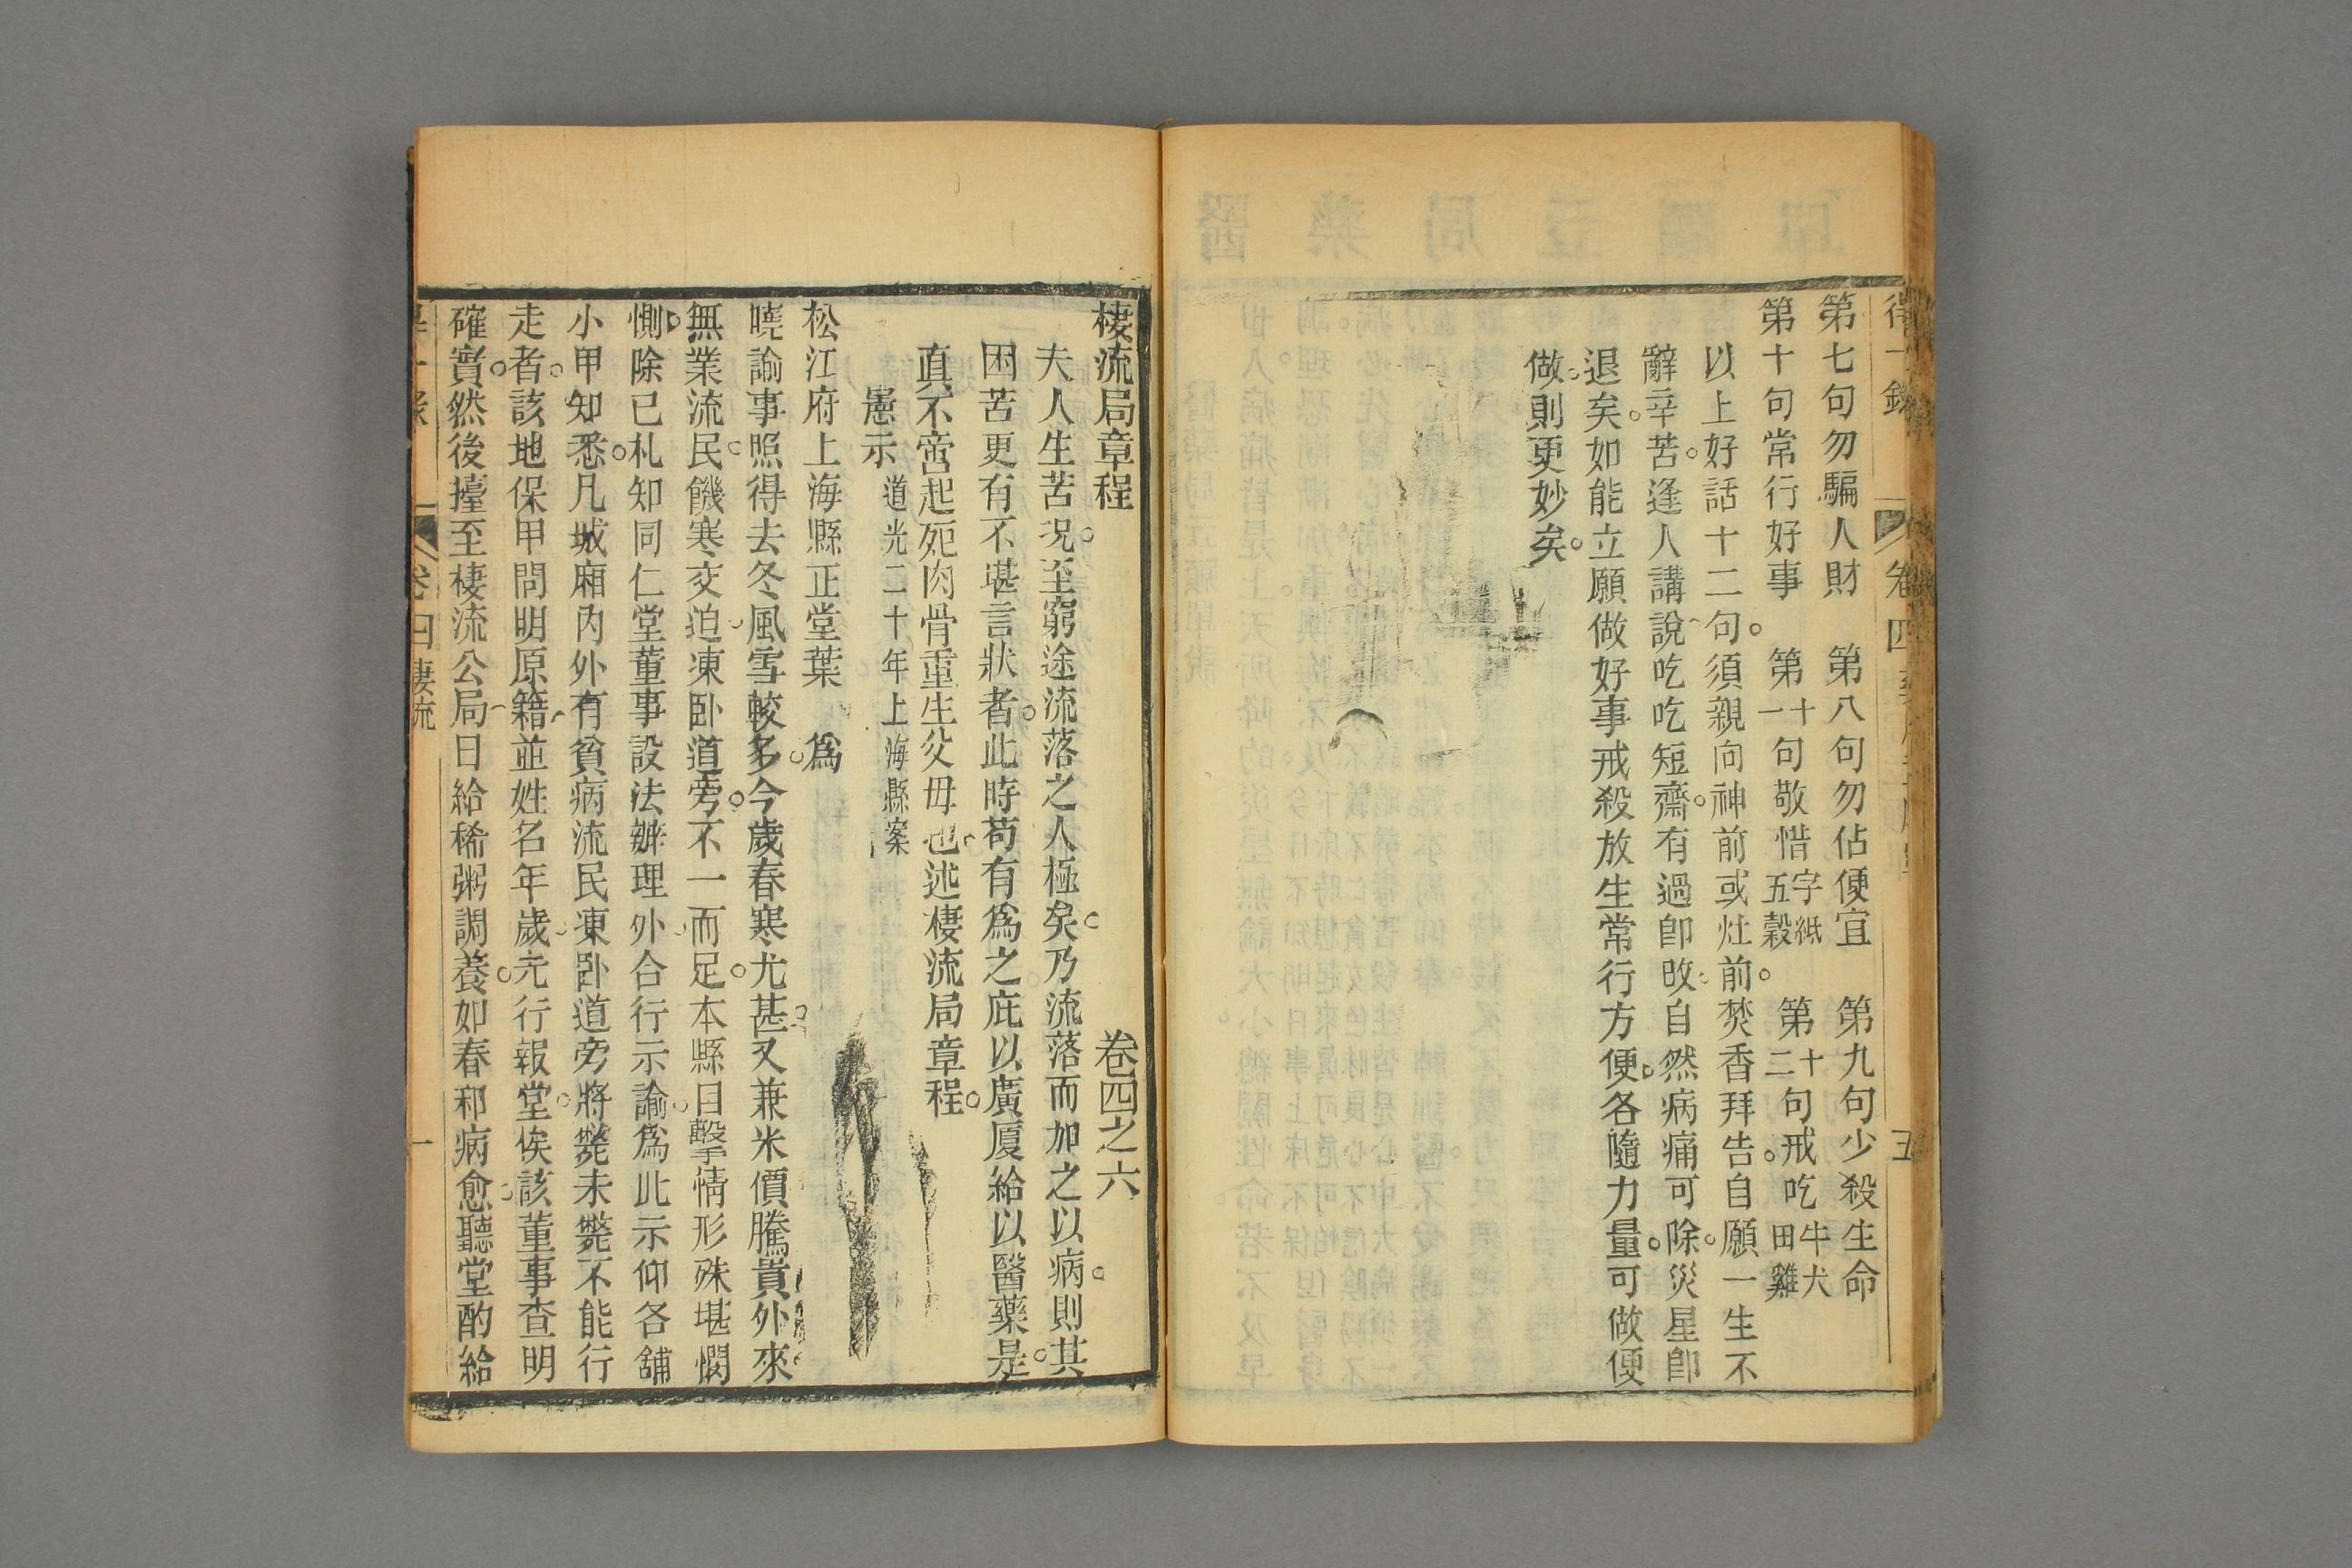 得一錄 卷四 五
第七句勿騙人財 第八句勿佔便宜 第九句少殺生命
第十句常行好事 第十一句敬惜字紙五穀 第十二句戒吃牛犬田雞
以上好話十二句。須親向神前或灶前。焚香拜告。自願一生不
辭辛苦。逢人講說吃吃短齋。有過卽改。自然病痛可除。災星卽
退矣。如能立願做好事戒殺放生常行方便。各隨力量。可做便
做。則更妙矣。
棲流局章程 卷四之六
夫人生苦况。至窮途流落之人極矣。乃流落而加之以病。則其
困苦更有不堪言狀者。此時苟有爲之庇以廣厦給以醫藥。是
眞不啻起死肉骨重生父毋也。述棲流局章程。
憲示 道光二十年上海縣案
松江府上海縣正堂葉 爲
曉諭事照得去冬風雪較多。今歲春寒尤甚。又兼米價騰貴。外來
無業流民。饑寒交迫。凍卧道旁。不一而足。本縣日擊情形殊堪憫
惻。除已札知同仁堂董事設法辦理外。合行示諭。爲此示仰各舖
小甲知悉。凡城廂內外有貧病流民凍卧道旁將斃未斃不能行
走者。該地保甲問明原籍並姓名年歲。先行報堂。俟該董事查明
確實。然後擡至棲流公局。日給稀粥調養。如春和病愈。聽堂酌給
卷四 棲流 一